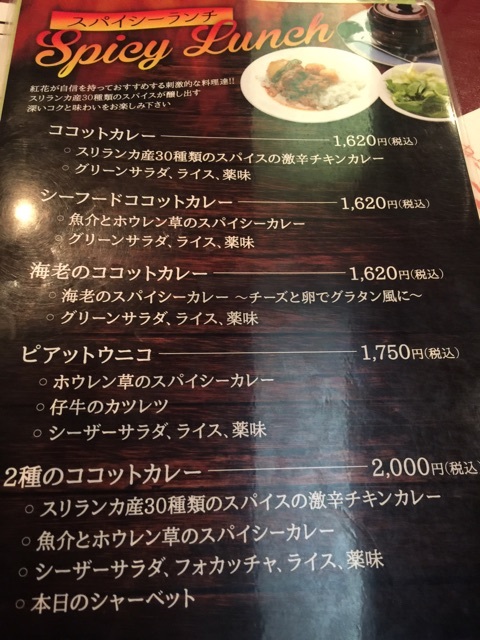 スパイシーランチ
Spicy Lunch
紅花が自信を持っておすすめする刺激的な料理達!!
スリランカ産30種類のスパイスが醸し出す
深いコクと味わいをお楽しみ下さい
ココットカレー 1,620円(税込)
○ スリランカ産30種類のスパイスの激辛チキンカレー
○ グリーンサラダ、ライス、薬味
シーフードココットカレー 1,620円(税込)
○ 魚介とホウレン草のスパイシーカレー
○ グリーンサラダ、ライス、薬味
海老のココットカレー 1,620円(税込)
○ 海老のスパイシーカレー 〜チーズと卵でグラタン風に〜
○ グリーンサラダ、ライス、薬味
ピアットウニコ 1,750円(税込)
○ ホウレン草のスパイシーカレー
○ 仔牛のカツレツ
○ シーザーサラダ、ライス、薬味
2種のココットカレー 2,000円(税込)
○ スリランカ産30種類のスパイスの激辛チキンカレー
○ 魚介とホウレン草のスパイシーカレー
○ シーザーサラダ、フォカッチャ、ライス、薬味
○ 本日のシャーベット